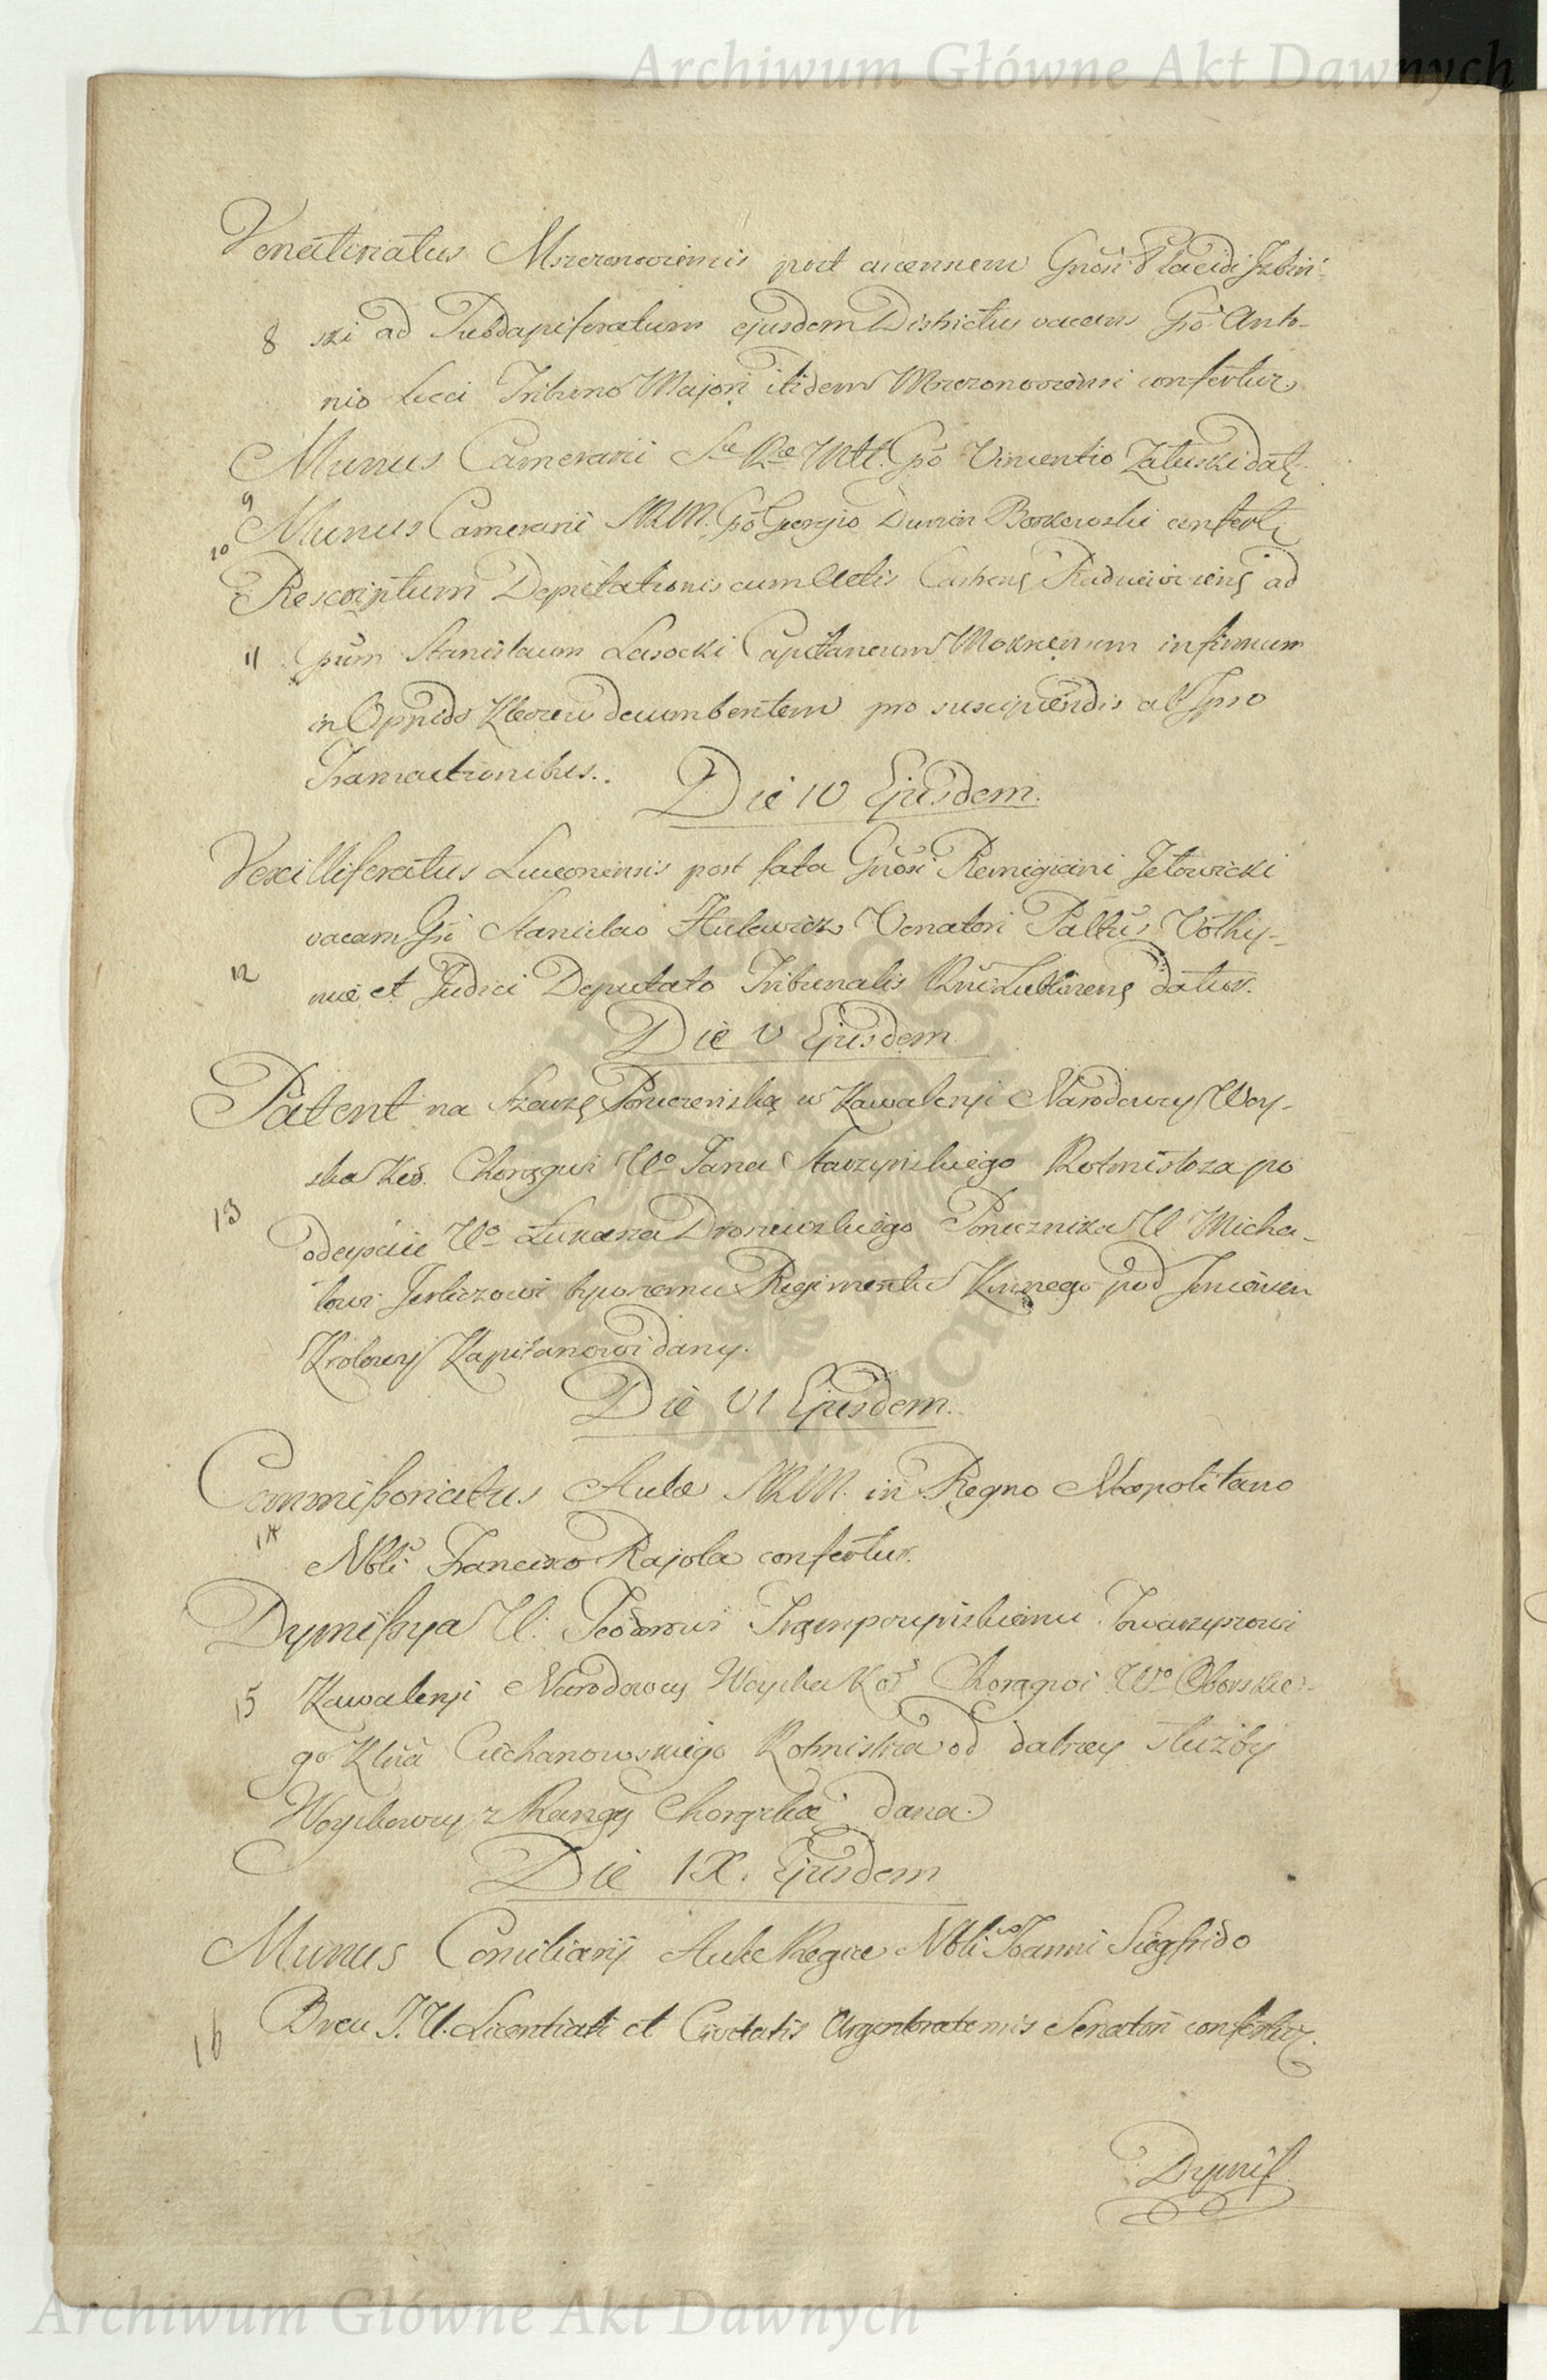 Archiwum Główne Akt Dawnych
Venatoriatus Msczonoviensis post ascensum Gnosi Placidi Izbin-
8 ski ad Subdapiferatum ejusdem Districtus vacans Gso Anto-
nio Lucci Tribuno Majori itidem Msczonoviensi confertur
Munus Camerarii Sae Rae Mtt. Gso Vincentio Załuski datę
9
Munus Camerarii SRM. Gso Georgio Dunin Borkowski confertę
10
Rescriptum Deputationis cum Actis Castrenę ad
11 Gsum Stanislaum Lasocki Capitaneum infirmum
in Oppido Kleczew decumbentem pro suscipiendis ab Ipso
Transactionibus.
Die IV Ejusdem.
Vexilliferatus Luceoriensis post fata Gnosi Remigiani Jełowicki
vacans Gso Stanislao Hulewicz Venatori Palttus Volhy-
12 niae et Judici Deputato Tribunalis Rni Lublinenę datur.
Die V Ejusdem
Patent na Szarżę Poruczeńską w Kawaleryi Narodowey Woy-
ska Kor. Chorągwi Wo Jana Starzyńskiego Rotmistrza po
13 odeyściu Wo Łukasza Porucznika W Micha-
łowi Jerliczowi byłemu Regimentu Konnego pod Imieniem
Krolowy Kapitanowi dany.
Die VI Ejusdem.
Commissoriatus Aulae SRM. in Regno Neapolitano
14 Nbli Francisco Rajola confertur.
Dymissya W. Teodorowi Trąmpczyńskiemu Towarzyszowi
15 Kawaleryi Narodowey Woyska Kor Chorągwi Wo Oborskie-
go Kttna Ciechanowskiego Rotmistrza od dalszey służby
Woyskowey z Rangą Chorążką dana.
Die IX. Ejusdem
Munus Consiliarij Aulae Regiae Nbli Joanni Siegfrido
16 Breu J. U. Licentiati et Civitatis Argentoratensis Senatori confertur.
Dymiss
Archiwum Główne Akt Dawnych